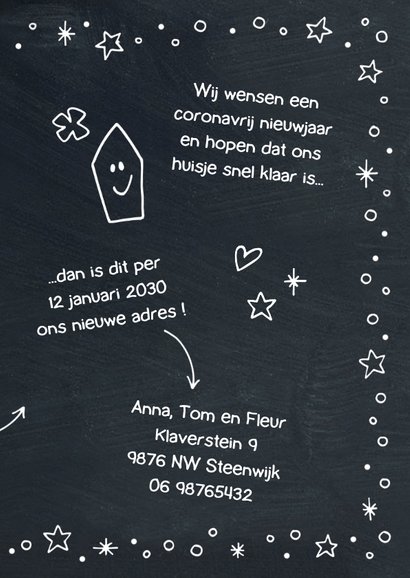 Wij wensen een
coronavrij nieuwjaar
en hopen dat ons
huisje snel klaar is...
...dan is dit per
12 januari 2030
ons nieuwe adres !
Anna, Tom en Fleur
Klaverstein 9
9876 NW Steenwijk
06 98765432